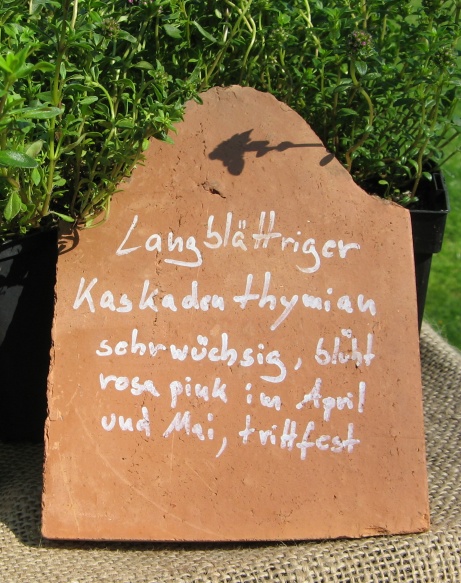 Langblättriger
Kaskadenthymian
sehrwüchsig, blüht
rosa pink im April
und Mai, trittfest